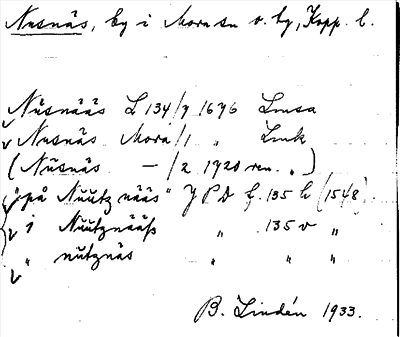 Nusnäs, by i Mora sn o. by, Kopp. l.
Nŭsnääs L 134/7 1696 Lmsa
v Nusnäs Mora/1 " Lmk
(Nŭsnäs — /2 1920 ren. ")
v "på Nŭŭtz nääs" JPD f. 135 h (1548).
v " i Nŭŭtznääſs " 135 v "
v " nŭtznäs " " "
B. Lindén 1933.